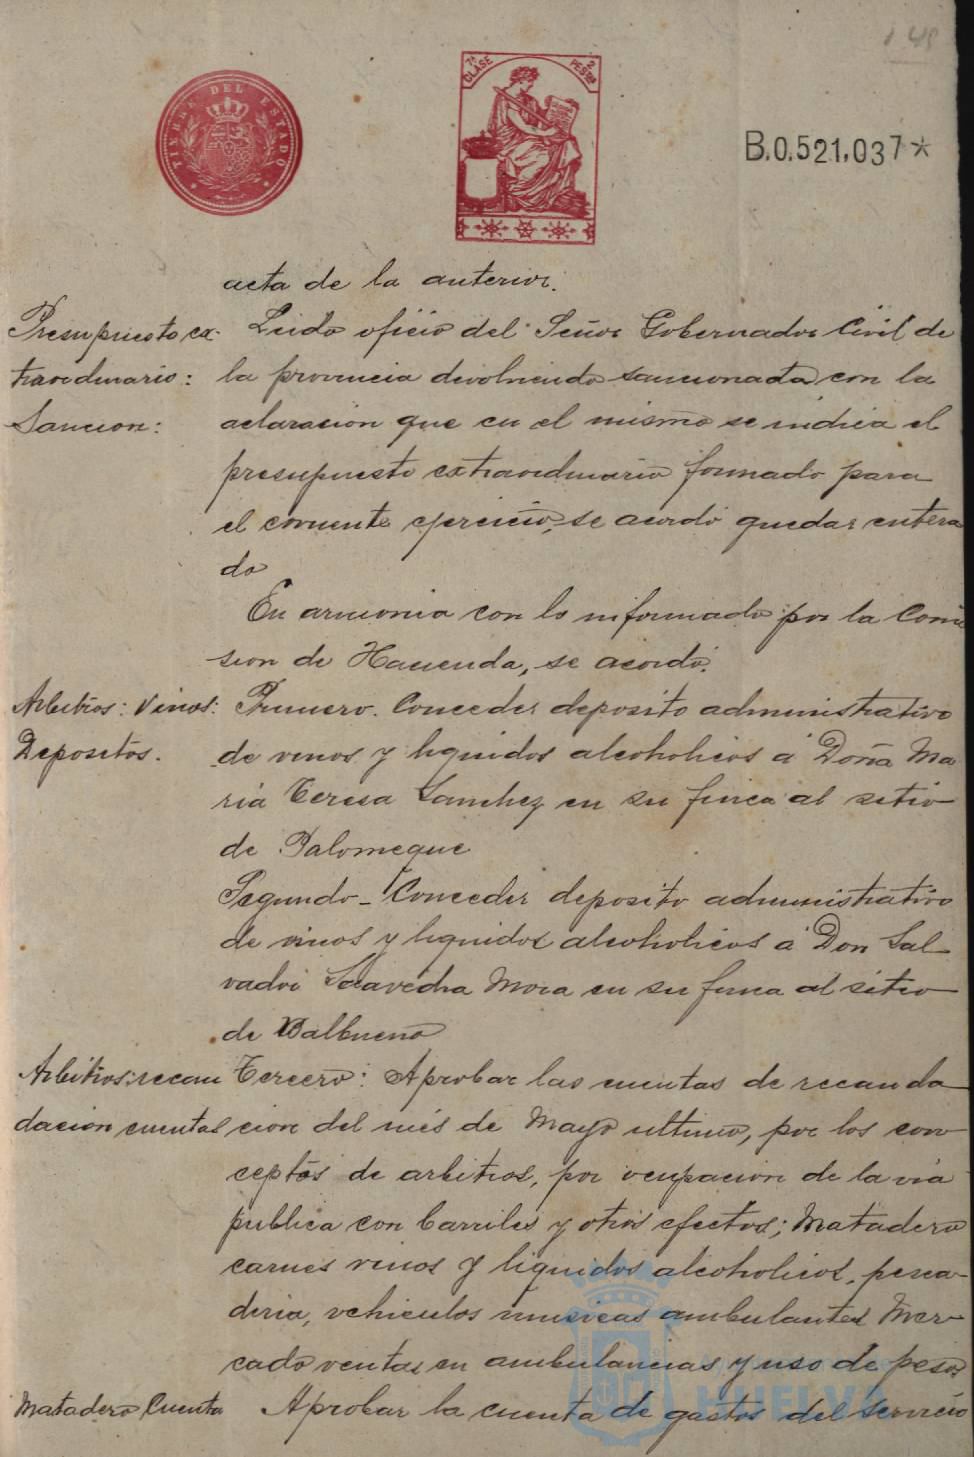 148
TIMBRE DEL ESTADO
7ª CLASE
2 PESTAS
B.0.521.037*
acta de la anterior.
Presupuesto ex-
traordinario:
Sancion:
Leido oficio del Señor Gobernador Civil de
la provincia devolviendo sancionada con la
aclaracion que en el mismo se indica el
presupuesto extraordinario formado para
el corriente ejercicio, se acordó quedar entera
do
En armonia con lo informado por la Comi
sion de Hacienda, se acordó:
Arbitrios: Vinos:
Depositos.
Primero. Conceder deposito administrativo
de vinos y liquidos alcoholicos á Doña Ma
ria Teresa Sanchez en su finca al sitio
de Palomeque
Segundo - Conceder deposito administrativo
de vinos y liquidos alcoholicos á Don Sal
vador Saavedra Mora en su finca al sitio
de Balbueno
Arbitrios: recau
dacion cuentas
Tercero: Aprobar las cuentas de recauda
cion del més de Mayo ultimo, por los con
ceptos de arbitrios, por ocupacion de la via
publica con barriles y otros efectos; Matadero
carnes vinos y liquidos alcoholicos, pesca-
deria, vehiculos musicas ambulantes Mer-
cado ventas en ambulancias y uso de pesos
Matadero Cuenta
Aprobar la cuenta de gastos del servicio
HUELVA